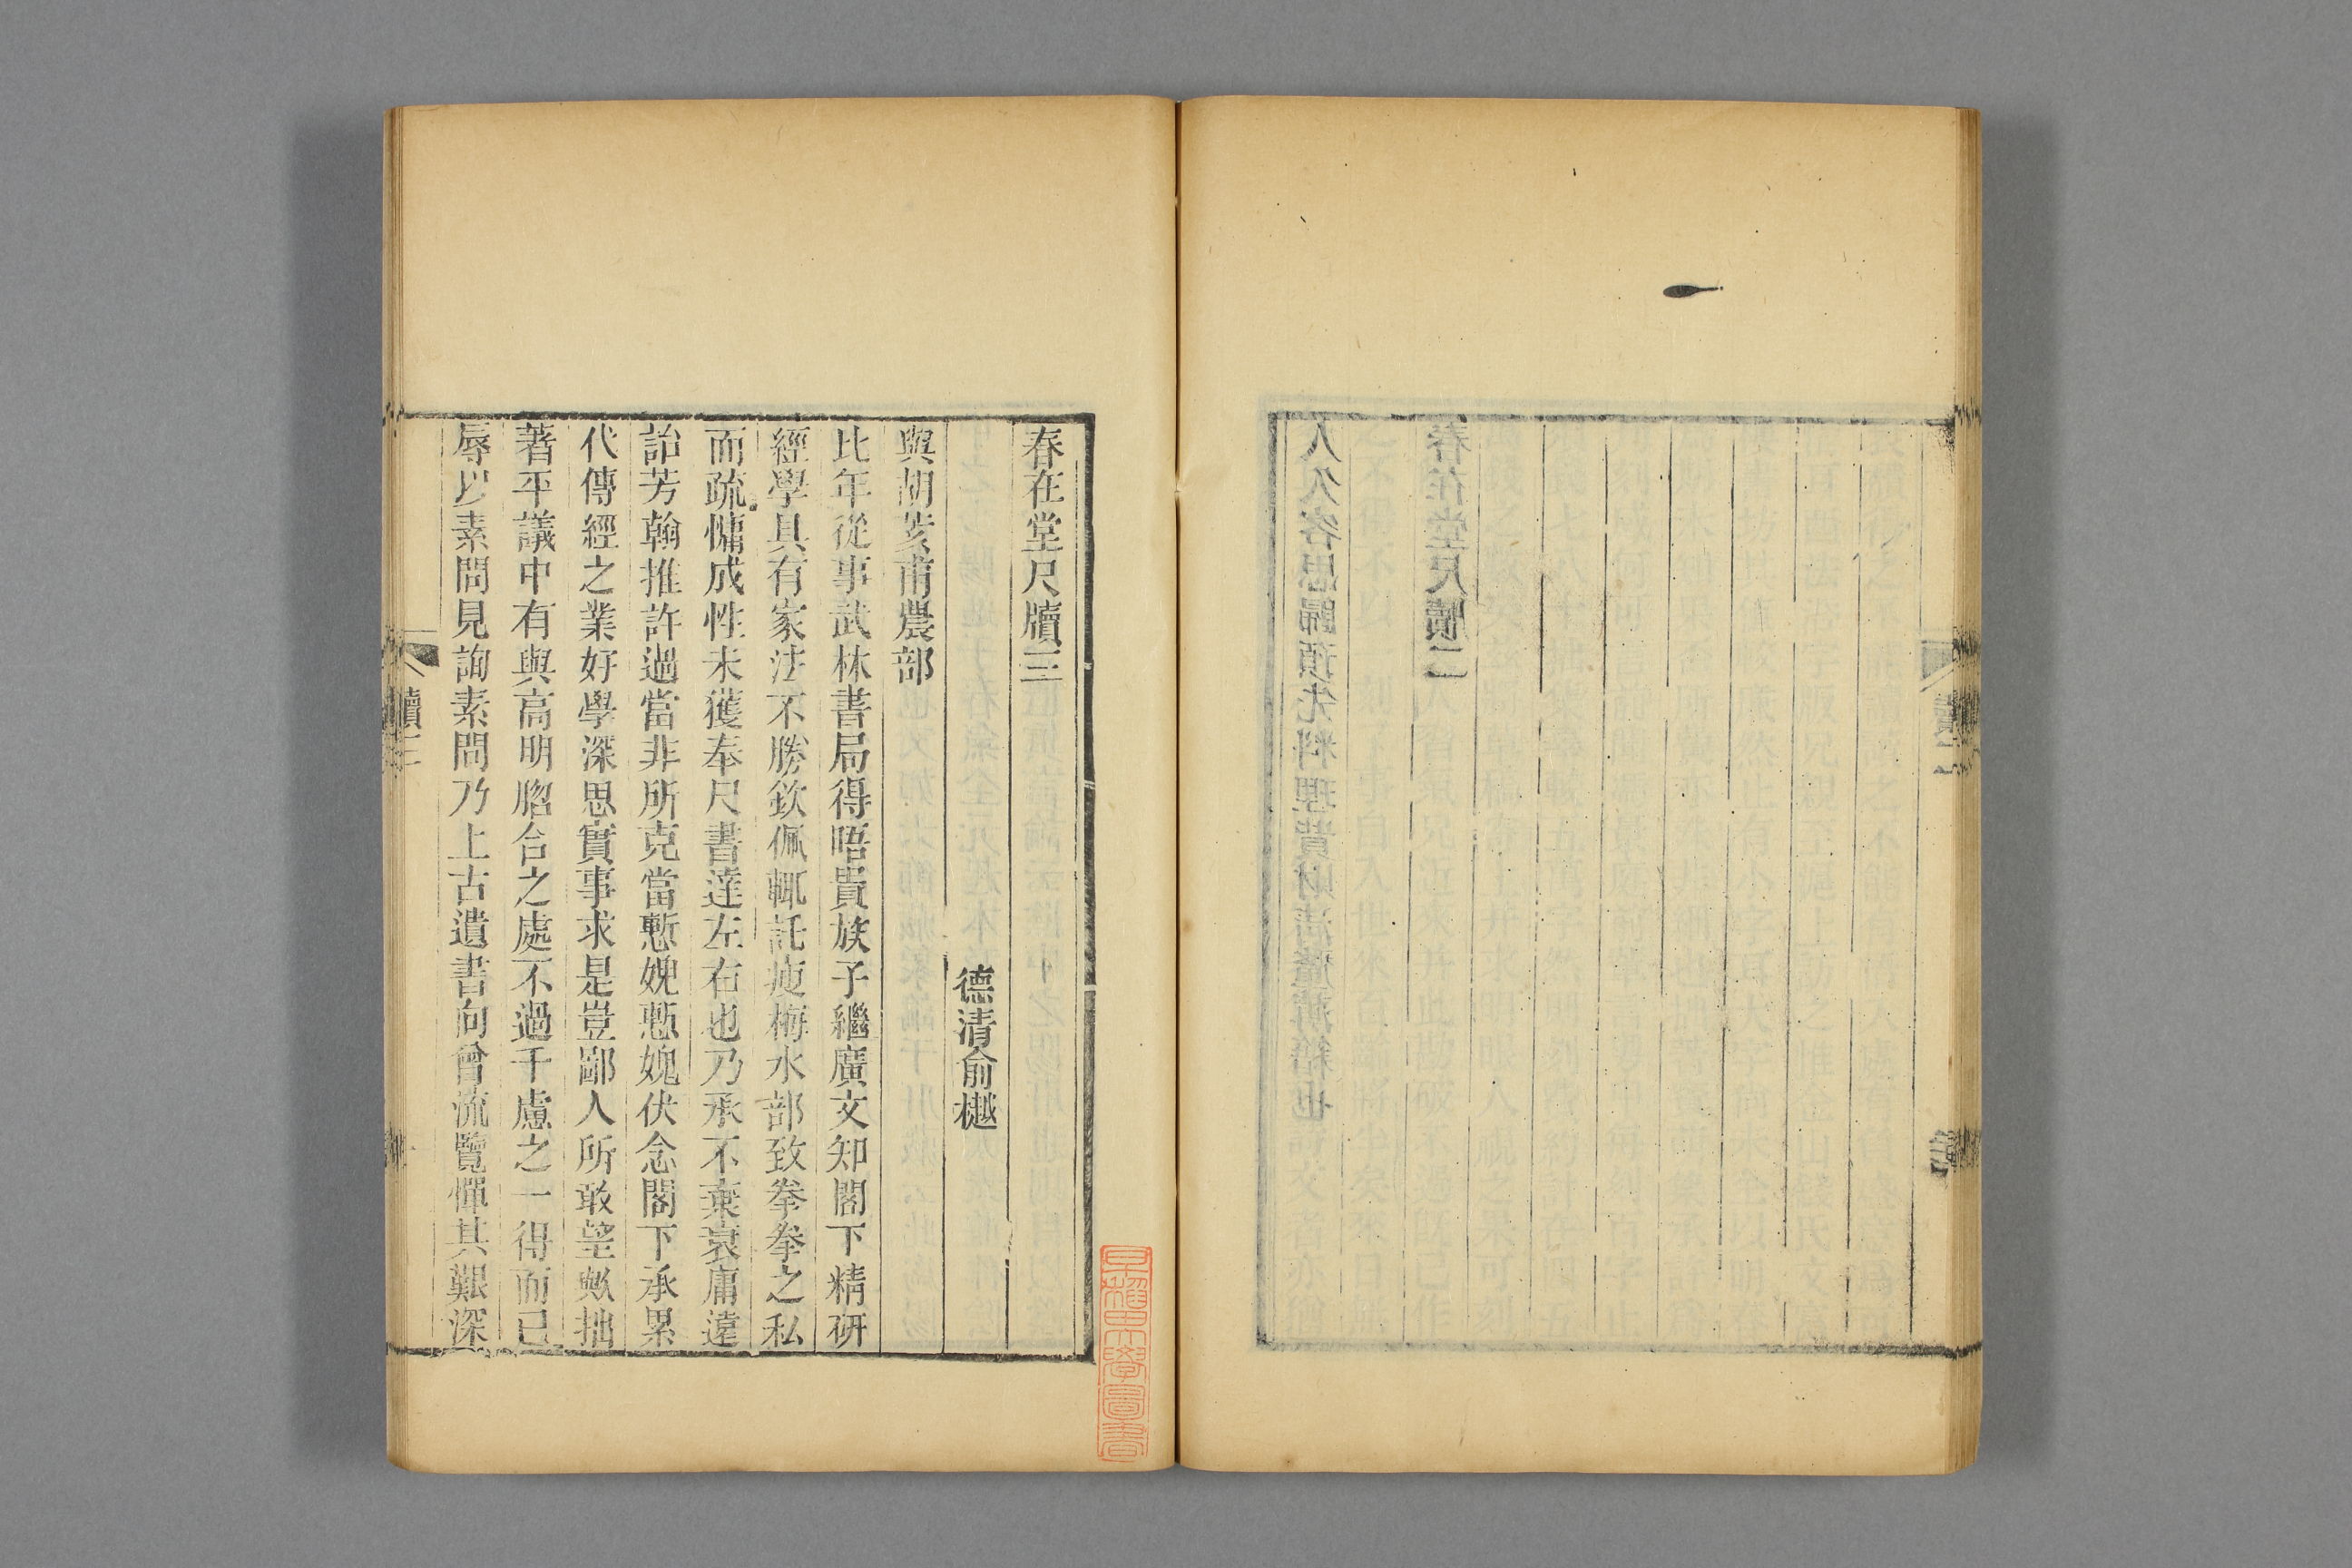 春在堂尺牘三
德清俞樾
與胡荄甫農部
比年從事武林書局得晤貴族子繼廣文知閣下精研
經學具有家法不勝欽佩輒託瘦梅水部致拳拳之私
而疏慵成性未獲奉尺書達左右也乃承不棄衰庸遠
詒芳翰推許過當非所克當慙媿慙媿伏念閣下承累
代傳經之業好學深思實事求是豈鄙人所敢望歟拙
著平議中有與高明脗合之處不過千慮之一得而已
辱以素問見詢素問乃上古遺書向曾流覽憚其艱深
牘三
早稻田大學圖書
人久客思歸預先料理貲財清釐簿籍也
春在堂尺牘二